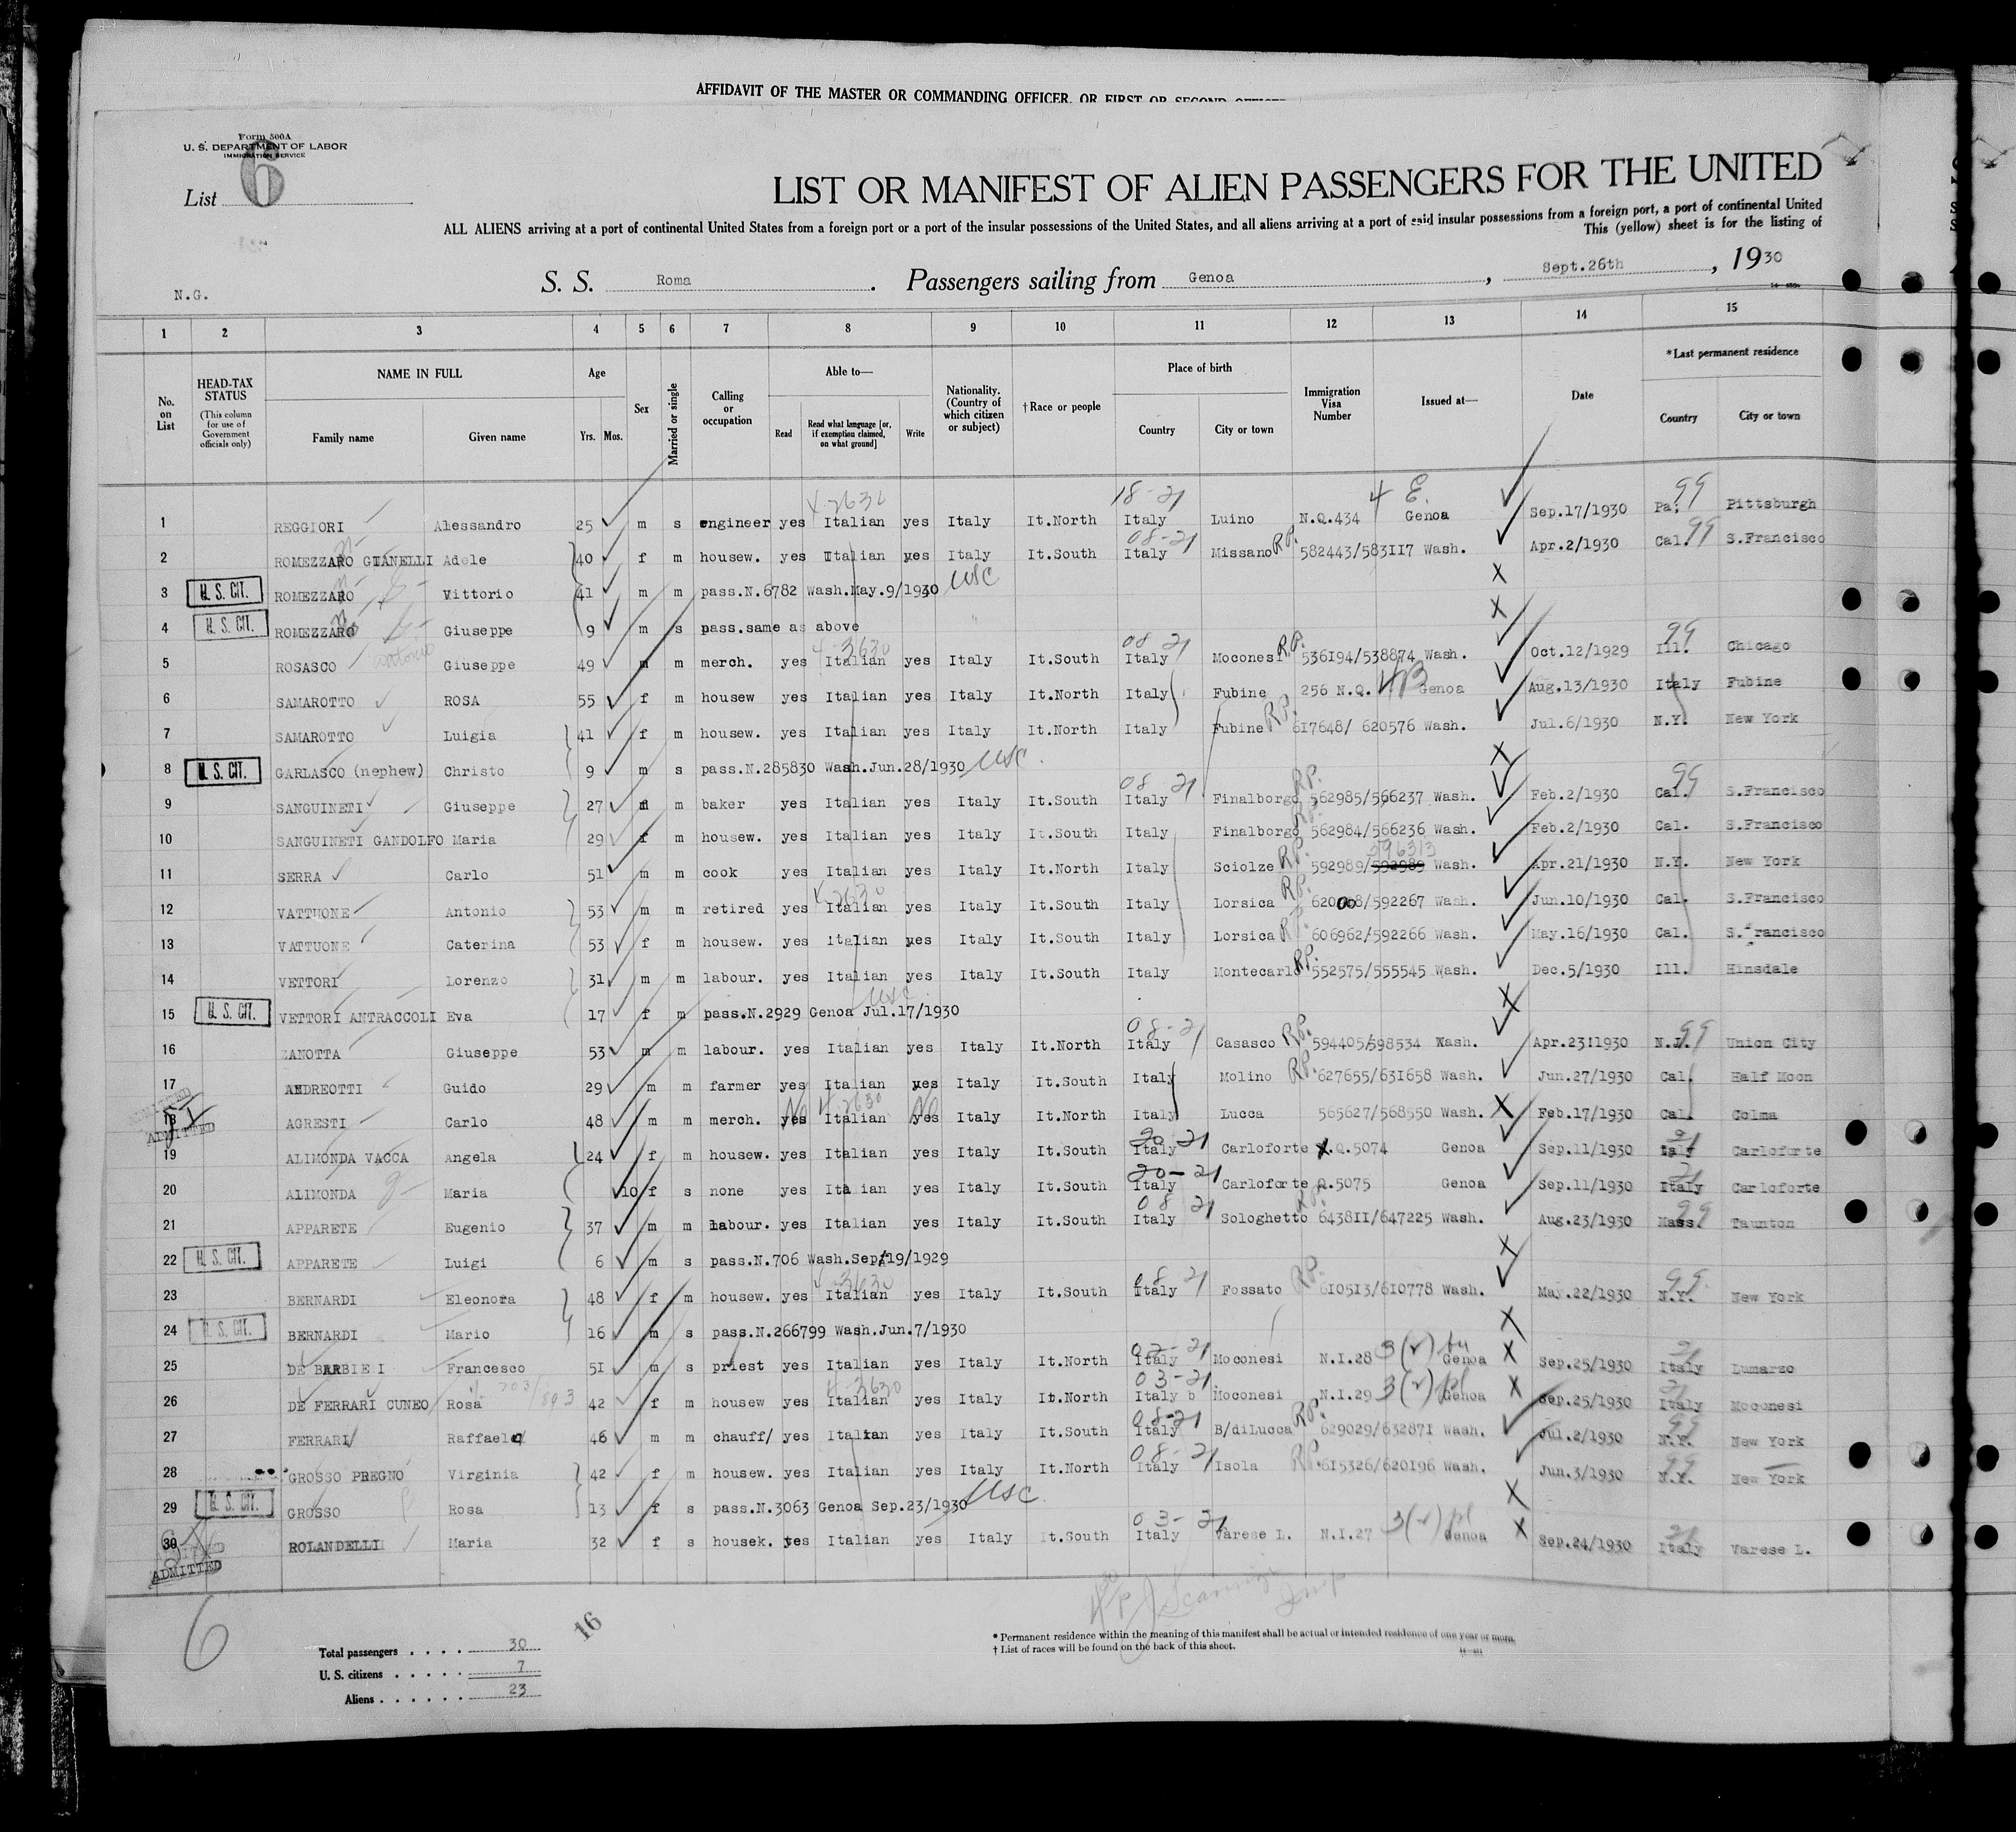 AFFIDAVIT OF THE MASTER OR COMMANDING OFFICER, OR FIRST OR SECOND
Form 500A
U. S. DEPARTMENT OF LABOR
IMMIGRATION SERVICE
List 6
LIST OR MANIFEST OF ALIEN PASSENGERS FOR THE UNITED
ALL ALIENS arriving at a port of continental United States from a foreign port or a port of the insular possessions of the United States, and all aliens arriving at a port of said insular possessions from a foreign port, a port of continental United
This (yellow) sheet is for the listing of
N.G.
S. S. Roma. Passengers sailing from Genoa, Sept.26th, 1930
1 2 3 4 5 6 7 8 9 10 11 12 13 14 15
No. on List
HEAD-TAX STATUS (This column for use of Government officials only)
NAME IN FULL Family name Given name
Age Yrs. Mos.
Sex
Married or single
Calling or occupation
Able to— Read Read what language [or, if exemption claimed, on what ground] Write
Nationality. (Country of which citizen or subject)
†Race or people
Place of birth Country City or town
Immigration Visa Number
Issued at—
Date
*Last permanent residence Country City or town
1 REGGIORI Alessandro 25 m s engineer yes Italian yes Italy It.North Italy Luino N.Q.434 Genoa Sep.17/1930 Pa. Pittsburgh
2 ROMEZZARO GIANELLI Adele 40 f m housew. yes Italian yes Italy It.South Italy Missano R.P. 582443/583117 Wash. Apr.2/1930 Cal. S.Francisco
3 U. S. CIT. ROMEZZARO Vittorio 41 m m pass.N.6782 Wash.May.9/1930 USC
4 U. S. CIT. ROMEZZARO Giuseppe 9 m s pass.same as above
5 ROSASCO Giuseppe 49 m m merch. yes Italian yes Italy It.South Italy Moconesi R.P. 536194/538874 Wash. Oct.12/1929 Ill. Chicago
6 SAMAROTTO ROSA 55 f m housew yes Italian yes Italy It.North Italy Fubine 256 N.Q. Genoa Aug.13/1930 Italy Fubine
7 SAMAROTTO Luigia 41 f m housew. yes Italian yes Italy It.North Italy Fubine R.P. 617648/ 620576 Wash. Jul.6/1930 N.Y. New York
8 U. S. CIT. GARLASCO (nephew) Christo 9 m s pass.N.285830 Wash.Jun.28/1930 USC.
9 SANGUINETI Giuseppe 27 m m baker yes Italian yes Italy It.South Italy Finalborgo R.P. 562985/566237 Wash. Feb.2/1930 Cal. S.Francisco
10 SANGUINETI GANDOLFO Maria 29 f m housew. yes Italian yes Italy It.South Italy Finalborgo 562984/566236 Wash. Feb.2/1930 Cal. S.Francisco
11 SERRA Carlo 51 m m cook yes Italian yes Italy It.North Italy Sciolze R.P. 592989/592989 596313 Wash. Apr.21/1930 N.Y. New York
12 VATTUONE Antonio 53 m m retired yes Italian yes Italy It.South Italy Lorsica R.P. 620008/592267 Wash. Jun.10/1930 Cal. S.Francisco
13 VATTUONE Caterina 53 f m housew. yes Italian yes Italy It.South Italy Lorsica R.P. 606962/592266 Wash. May.16/1930 Cal. S.Francisco
14 VETTORI Lorenzo 31 m m labour. yes Italian yes Italy It.South Italy Montecarlo R.P. 552575/555545 Wash. Dec.5/1930 Ill. Hinsdale
15 U. S. CIT. VETTORI ANTRACCOLI Eva 17 f m pass.N.2929 Genoa Jul.17/1930 USC
16 ZANOTTA Giuseppe 53 m m labour. yes Italian yes Italy It.North Italy Casasco R.P. 594405/598534 Wash. Apr.23!1930 N.J. Union City
17 ANDREOTTI Guido 29 m m farmer yes Italian yes Italy It.South Italy Molino R.P. 627655/631658 Wash. Jun.27/1930 Cal. Half Moon
18 ADMITTED AGRESTI Carlo 48 m m merch. yes Italian yes Italy It.North Italy Lucca 565627/568550 Wash. Feb.17/1930 Cal. Colma
19 ALIMONDA VACCA Angela 24 f m housew. yes Italian yes Italy It.South Italy Carloforte Q.5074 Genoa Sep.11/1930 Italy Carloforte
20 ALIMONDA Maria 10 f s none yes Italian yes Italy It.South Italy Carloforte Q.5075 Genoa Sep.11/1930 Italy Carloforte
21 APPARETE Eugenio 37 m m labour. yes Italian yes Italy It.South Italy Sologhetto R.P. 643811/647225 Wash. Aug.23/1930 Mass. Taunton
22 U. S. CIT. APPARETE Luigi 6 m s pass.N.706 Wash.Sep.19/1929
23 BERNARDI Eleonora 48 f m housew. yes Italian yes Italy It.South Italy Fossato R.P. 610513/610778 Wash. May.22/1930 N.Y. New York
24 U. S. CIT. BERNARDI Mario 16 m s pass.N.266799 Wash.Jun.7/1930
25 DE BARBIERI Francesco 51 m s priest yes Italian yes Italy It.North Italy Moconesi N.I.28 Genoa Sep.25/1930 Italy Lumarzo
26 DE FERRARI CUNEO Rosa 42 f m housew yes Italian yes Italy It.North Italy Moconesi N.I.29 Genoa Sep.25/1930 Italy Moconesi
27 FERRARI Raffaele 46 m m chauff/ yes Italian yes Italy It.South Italy B/diLucca R.P. 629029/632871 Wash. Jul.2/1930 N.Y. New York
28 GROSSO PREGNO Virginia 42 f m housew. yes Italian yes Italy It.North Italy Isola R.P. 615326/620196 Wash. Jun.3/1930 N.Y. New York
29 U. S. CIT. GROSSO Rosa 13 f s pass.N.3063 Genoa Sep.23/1930 USC
30 ADMITTED ROLANDELLI Maria 32 f s housek. yes Italian yes Italy It.South Italy Varese L. N.I.27 Genoa Sep.24/1930 Italy Varese L.
6
16
Total passengers . . . . . 30
U. S. citizens . . . . . 7
Aliens . . . . . . 23
* Permanent residence within the meaning of this manifest shall be actual or intended residence of one year or more.
† List of races will be found on the back of this sheet.